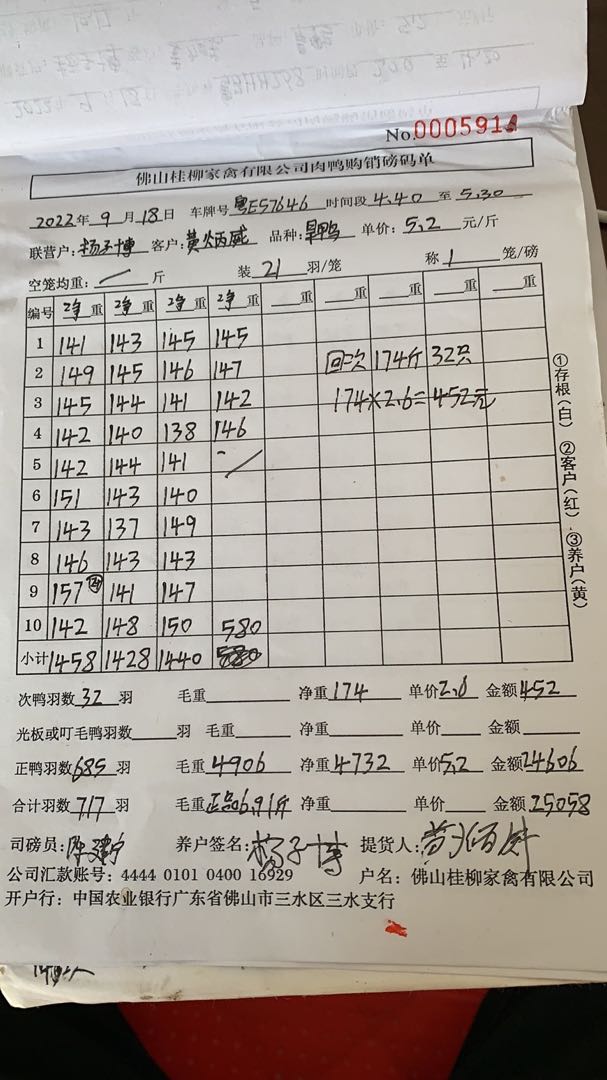 No.000591
佛山桂柳家禽有限公司肉鸭购销磅码单
2022年 9 月 18 日 车牌号 粤E57646 时间段 4.40 至 5.30
联营户: 杨子博 客户: 黄炳威 品种: 单价: 5.2 元/斤
空笼均重: / 斤 装 21 羽/笼 称 1 笼/磅
编号 净重 净重 净重 净重 重 重 重 重
1 141 143 145 145
2 149 145 146 147 回次174斤32只
3 145 144 141 142 174×2.6=452元
4 142 140 138 146
5 142 144 141
6 151 143 140
7 143 137 149
8 146 143 143
9 157 141 147
10 142 148 150 580
小计 1458 1428 1440
①存根(白) ②客户(红) ③养户(黄)
次鸭羽数 32 羽 毛重 净重 174 单价 2.6 金额 452
光板或叮毛鸭羽数 羽 毛重 净重 单价 金额
正鸭羽数 685 羽 毛重 4906 净重 4732 单价 5.2 金额 24606
合计羽数 717 羽 毛重 正品6.91斤 净重 单价 金额 25058
司磅员: 养户签名: 杨子博 提货人:
公司汇款账号: 4444 0101 0400 16929 户名: 佛山桂柳家禽有限公司
开户行: 中国农业银行广东省佛山市三水区三水支行